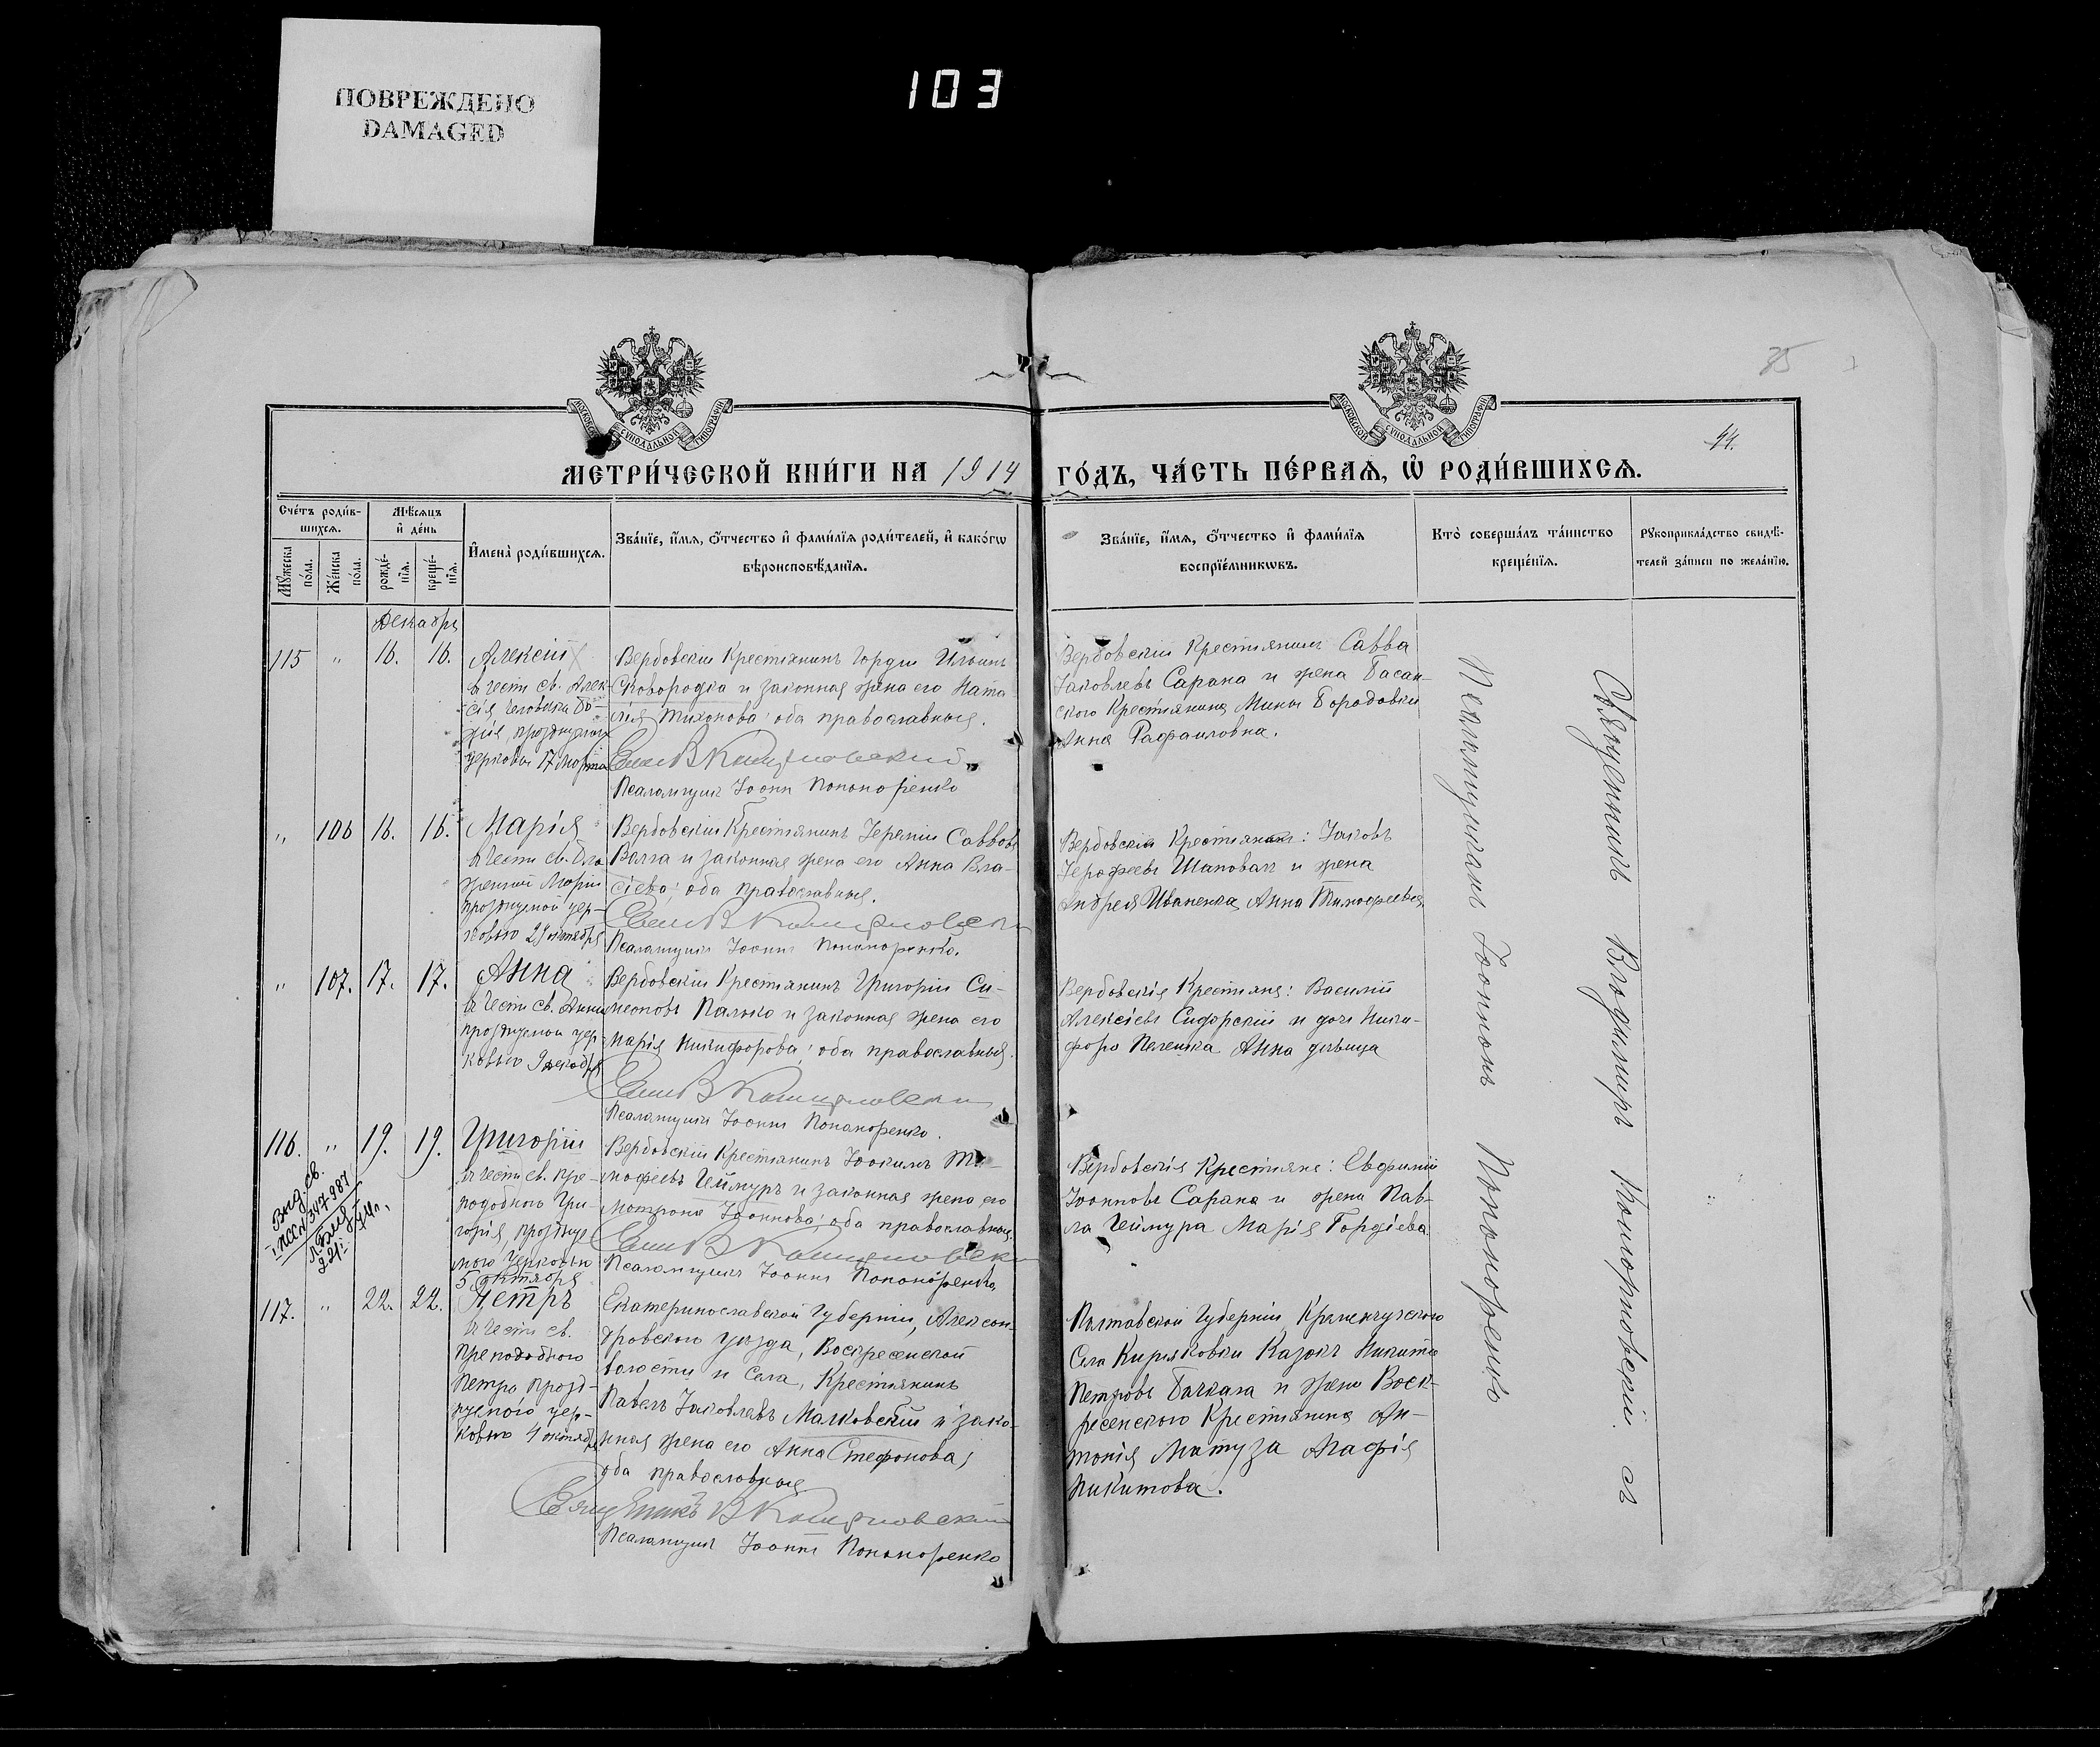 ПОВРЕЖДЕНО
DAMAGED
103
35
44.
МОСКОВСКОЙ СѴНОДАЛЬНОЙ ТИПОГРАФІИ
МОСКОВСКОЙ СѴНОДАЛЬНОЙ ТИПОГРАФІИ
МЕТРИ́ЧЕСКОЙ КНИ́ГИ НА 1914
ГО́ДЪ, ЧА́СТЬ ПЕ́РВАЯ, Ѡ҆ РОДИ́ВШИХСЯ.
Сче́тъ роди́в-
шихсѧ.
Мꙋ́жеска по́ла.
Же́нска по́ла.
Мѣ́сѧцъ
и҆ де́нь
рожде́-
нїѧ.
креще́-
нїѧ.
И҆мена̀ роди́вшихсѧ.
Зва́нїе, и҆́мѧ, ѻ҆́тчество и҆ фами́лїѧ роди́телей, и҆ како́гѡ
вѣроисповѣ́данїѧ.
Зва́нїе, и҆́мѧ, ѻ҆́тчество и҆ фами́лїѧ
воспрїе́мникѡвъ.
Кто̀ соверша́лъ та́инство
креще́нїѧ.
Рꙋкоприкла́дство свидѣ́-
телей за́писи по жела́нїю.
Декабря
115 " 16. 16. Алексій
въ честь св. Алек-
сія человѣка Бо-
жія, празднуемаго
церковью 17 марта
Вербовскій Крестьянинъ Гордій Ильинъ
Сковородка и законная жена его Ната-
лія Тихонова; оба православные.
Свящ В Кошарновскій
Псаломщикъ Іоаннъ Пономаренко
Вербовскій Крестьянинъ Савва
Іаковлевъ Сарана и жена Басан-
ского Крестьянина Мины Бородавки
Анна Рафаиловна.
" 106 16. 16. Марія
въ честь св. Бла-
женной Маріи
празднуемой цер-
ковью 29 октября
Вербовскій Крестьянинъ Іеремій Саввовъ
Валга и законная жена его Анна Вла-
сіева; оба православные.
Свящ В
Псаломщикъ Іоаннъ Пономаренко.
Вербовскіе Крестьяне: Іаковъ
Іерофеевъ Шаповалъ и жена
Андрея Иваненка Анна Тимофеевна
" 107. 17. 17. Анна
въ честь св. Анны
празднуемой цер-
ковью 9 декабря
Вербовскій Крестьянинъ Григорій Си-
меоновъ Палько и законная жена его
Марія Никифорова; оба православные.
Свящ В
Псаломщикъ Іоаннъ Пономаренко.
Вербовскія Крестьяне: Василій
Алексіевъ Сидорскій и дочь Ники-
фора Пелешка Анна дѣвица
116. " 19. 19. Григорій
въ честь св. Пре-
подобного Гри-
горія, праздну-
мого Церковью
5 октября
Выд. св.
347987
Вербовскій Крестьянинъ Іоакимъ Ти-
мофеевъ Геймуръ и законная жена его
Матрона Іоаннова; оба православные
Свящ В
Псаломщикъ Іоаннъ Пономаренко
Вербовскія Крестьяне: Евфимій
Іоанновъ Сарана и жена Пав-
ла Геймура Марія Гордіева
117. " 22. 22. Петръ
въ честь св.
Преподобного
Петра празд-
нуемого цер-
ковью 4 октября
Екатеринославской Губерніи, Александ-
ровского уѣзда, Воскресенской
волости и Села, Крестьянинъ
Павелъ Іаковлевъ Малковскій и зако-
нная жена его Анна Стефанова,
оба православные
Священникъ В Кошарновскій
Псаломщикъ Іоаннъ Пономаренко
Полтавской Губерніи, Кременчугского
Села Кирияковки Казакъ Никита
Петровъ Бачкала и жена Воск-
ресенского Крестьянина Ан-
тонія Матуза Агафія
Никитова.
Священникъ Владимиръ съ
Псаломщикомъ Іоанномъ Пономаренко